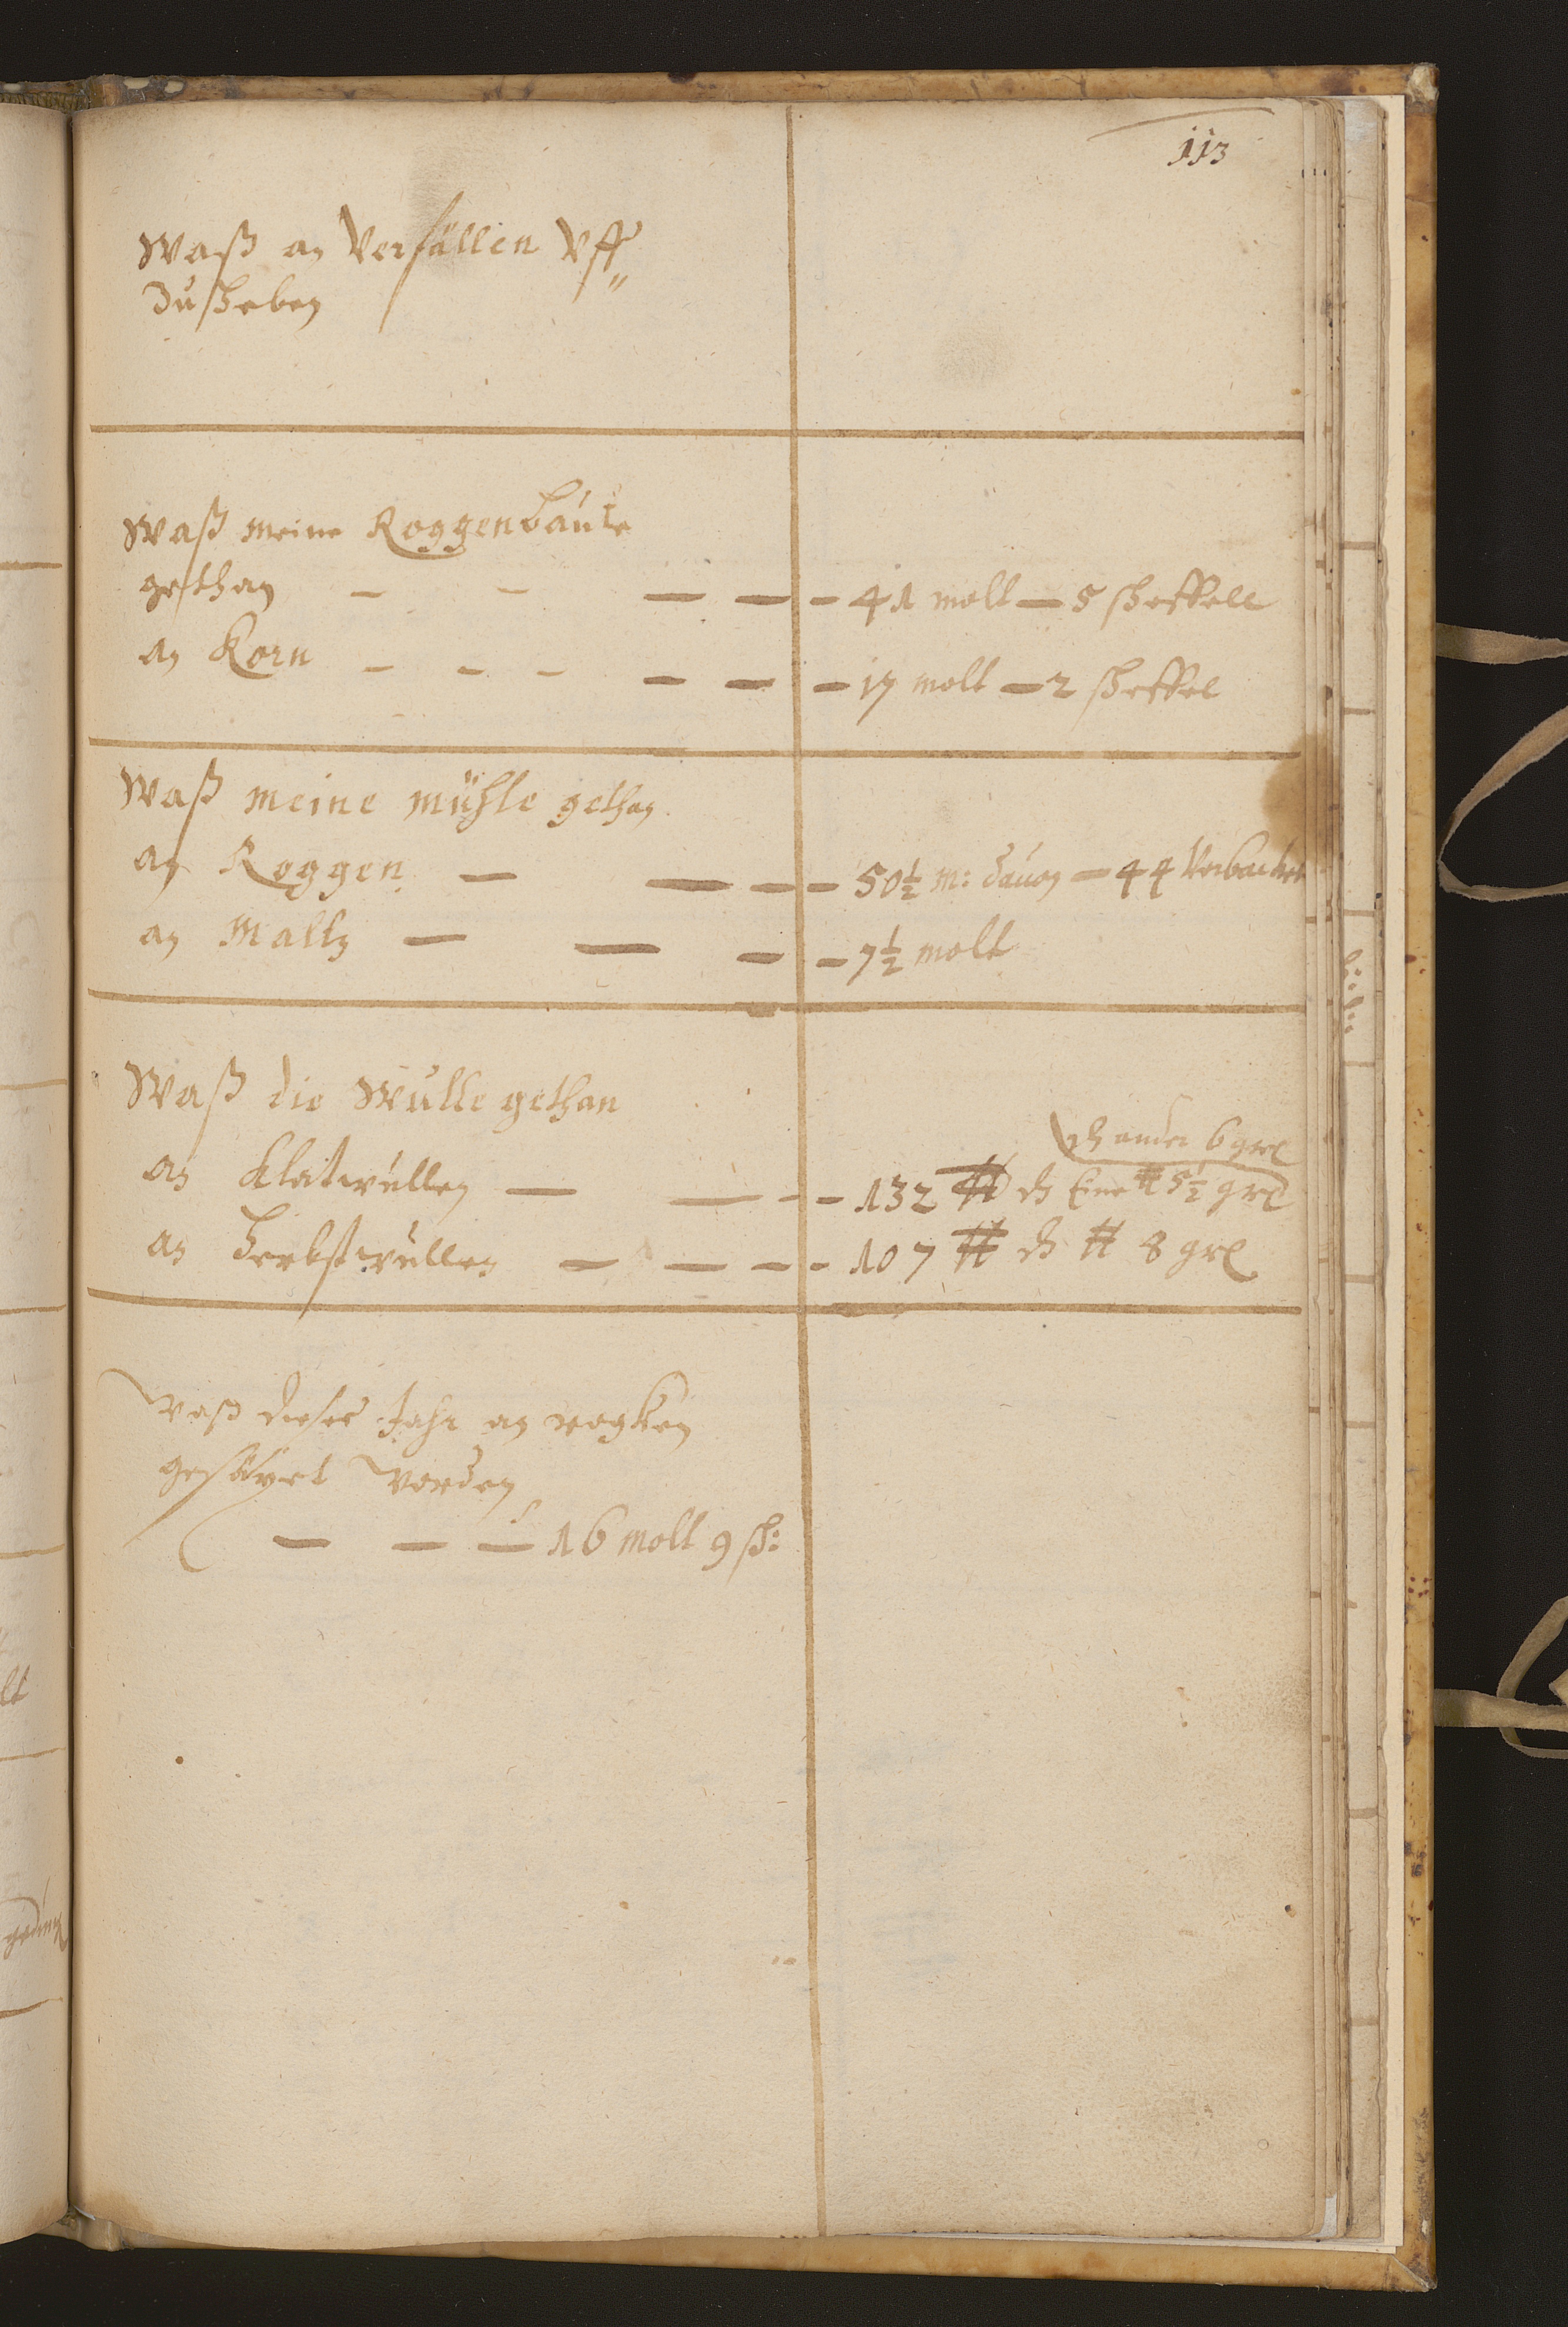 113
Waß an Verfällen Vff„
Zuheben
Waß meine Roggenbäute
gethan — — — — — 41 molt — 5 scheffell
an Korn — — — — — — 17 molt — 2 scheffel
Waß meine mühle gethan
an Roggen — — — — 50½ m: dauon — 44 Verbacken
an Maltz — — — — 7½ molt
Waß die Wulle gethan
dz ander 6 grl
an Klatwüllen — — — — 132 ℔ dz Eine ℔ 5½ grl
an Herbstwüllen — — — — 107 ℔ dz ℔ 8 grl
Waß dieses Jahr an rogken
gesäyet worden
— — — 16 molt 9 sch: